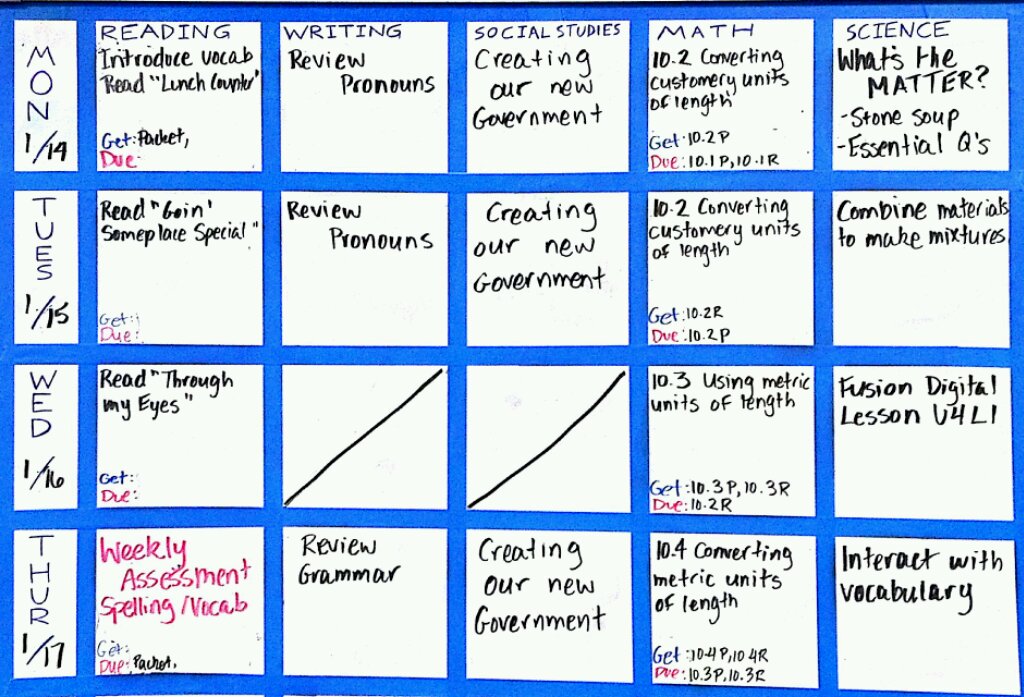 READING WRITING SOCIAL STUDIES MATH SCIENCE
MON
1/14
Introduce vocab
Read "Lunch Counter"
Get: Packet,
Due:
Review
Pronouns
Creating
our new
Government
10.2 Converting
customery units
of length
Get: 10.2P
Due: 10.1P, 10.1R
What's the
MATTER?
- Stone soup
- Essential Q's
TUES
1/15
Read "Goin'
Someplace Special"
Get:
Due:
Review
Pronouns
Creating
our new
Government
10.2 Converting
customery units
of length
Get: 10.2R
Due: 10.2P
Combine materials
to make mixtures
WED
1/16
Read "Through
my Eyes"
Get:
Due:
10.3 Using metric
units of length
Get: 10.3P, 10.3R
Due: 10.2R
Fusion Digital
Lesson U4L1
THUR
1/17
Weekly
Assessment
Spelling/Vocab
Get:
Due: Packet,
Review
Grammar
Creating
our new
Government
10.4 Converting
metric units
of length
Get: 10.4P, 10.4R
Due: 10.3P, 10.3R
Interact with
vocabulary